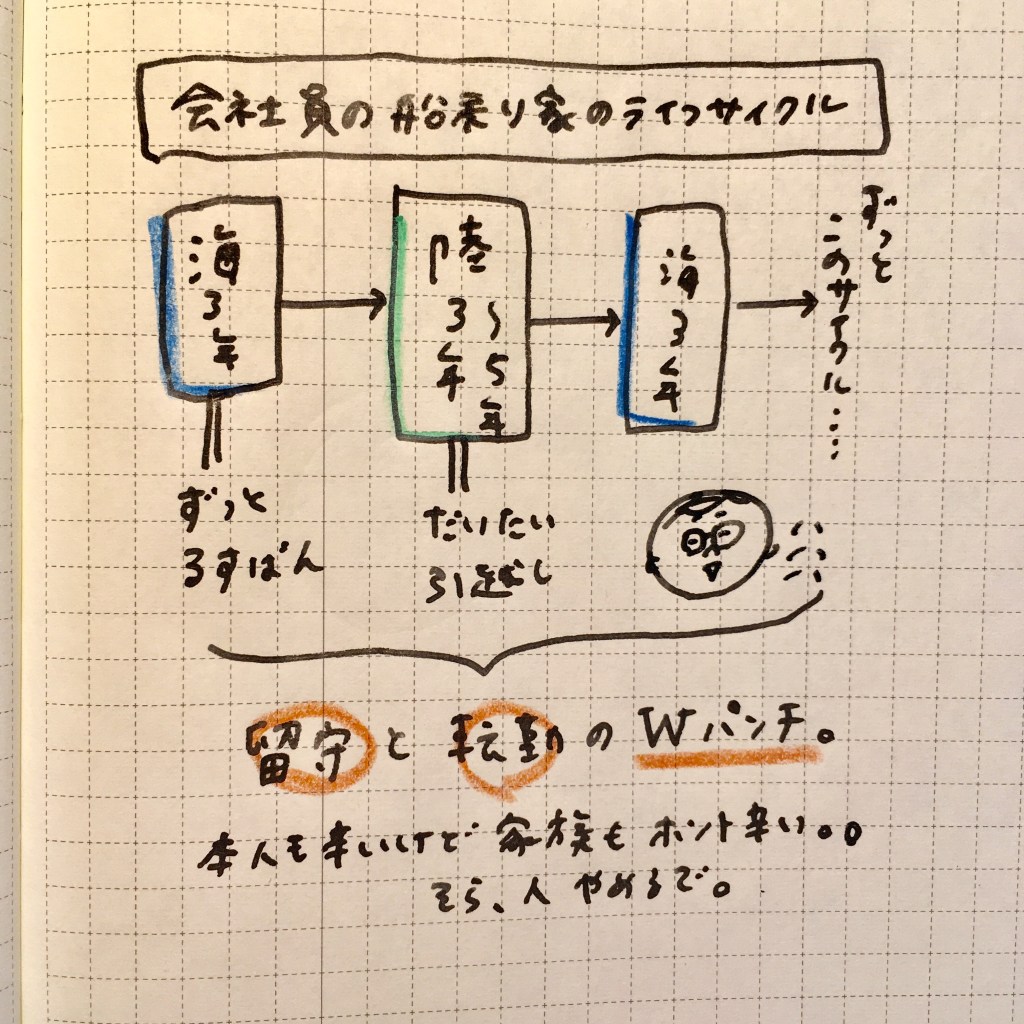 会社員の船乗り家のライフサイクル
海3年
陸3年
〜5年
海3年
ずっと
このサイクル‥‥
ずっと
るすばん
だいたい
引越し
留守と転勤のWパンチ。
本人も辛いけど家族もホント辛い。。
そら、人やめるで。